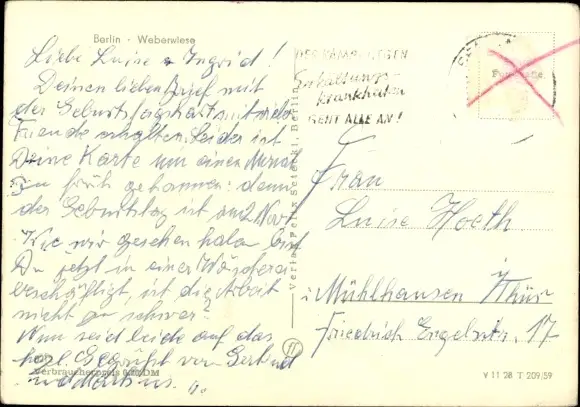 Berlin · Weberwiese
Liebe Luise u Ingrid!
Deinen lieben Brief mit
der Geburtstagskarte mit vieler
Freude erhalten. Leider ist
Deine Karte um einen Monat
zu früh gekommen: denn
der Geburtstag ist am 2 Nov.
Wie wir gesehen haben, bist
Du jetzt in einer Wäscherei
beschäftigt, ist die Arbeit
nicht zu schwer?
Nun seid beide auf das
herzl. Gegrüßt von
Verbraucherpreis DM
DER KAMPF GEGEN
Erkältungs-
krankheiten
GEHT ALLE AN!
Verlag Felix Setecki, Berlin
Frau
Luise Hoeth
i. Mühlhausen i/Thür
Friedrich Engelsstr. 17
V 11 28 T 209/59